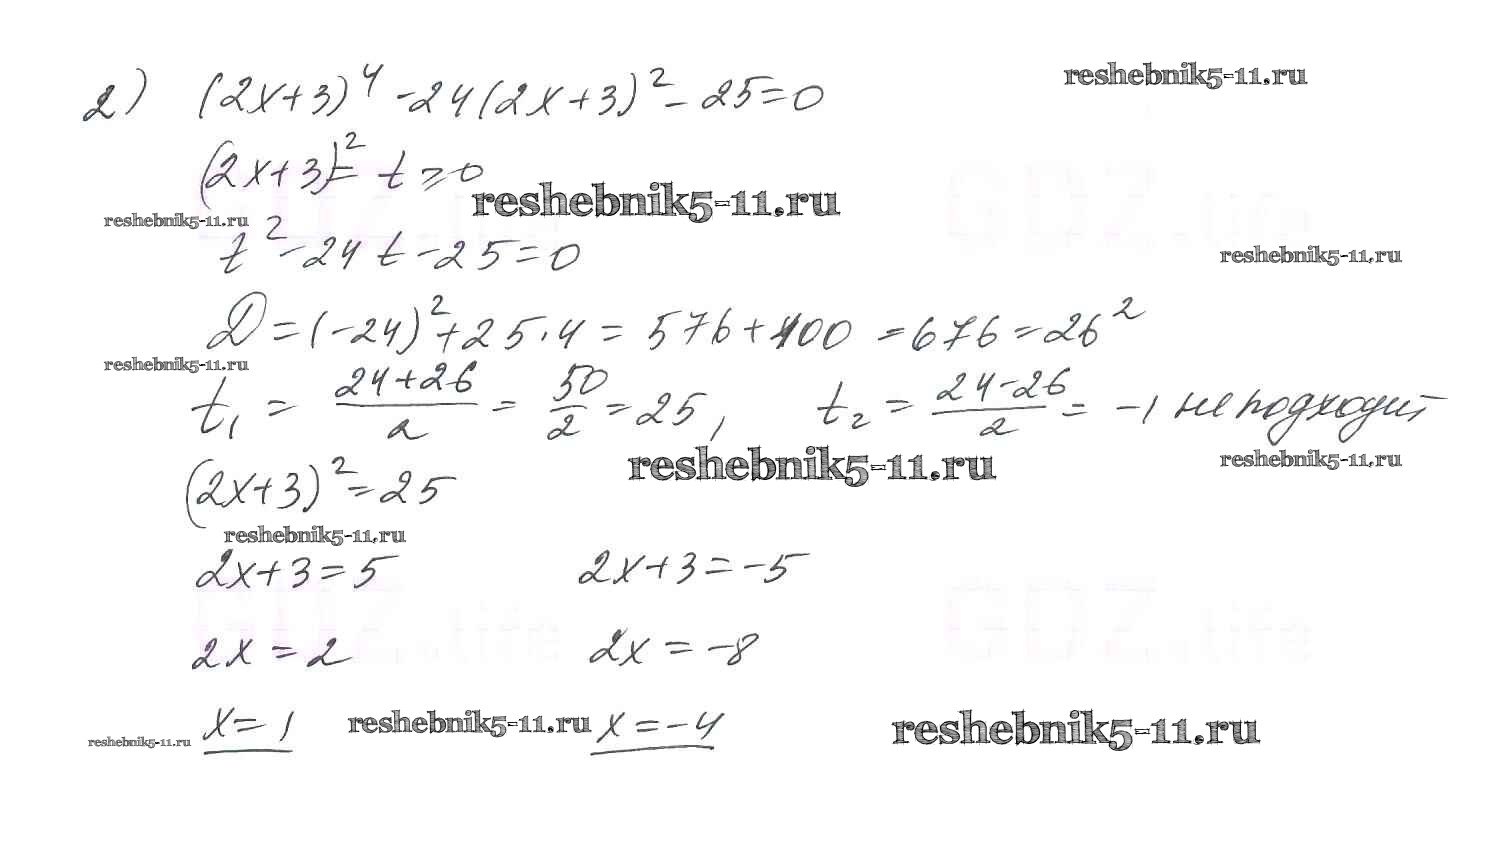 2) (2x+3)⁴-24(2x+3)²-25=0
reshebnik5-11.ru
(2x+3)²=t⩾0
reshebnik5-11.ru
reshebnik5-11.ru
GDZ.life
GDZ.life
t²-24t-25=0
reshebnik5-11.ru
D=(-24)²+25·4=576+100=676=26²
reshebnik5-11.ru
t₁=(24+26)/2=50/2=25, t₂=(24-26)/2=-1 не подходит
reshebnik5-11.ru
reshebnik5-11.ru
(2x+3)²=25
reshebnik5-11.ru
2x+3=5 2x+3=-5
GDZ.life
GDZ.life
2x=2 2x=-8
x=1 x=-4
reshebnik5-11.ru
reshebnik5-11.ru
reshebnik5-11.ru